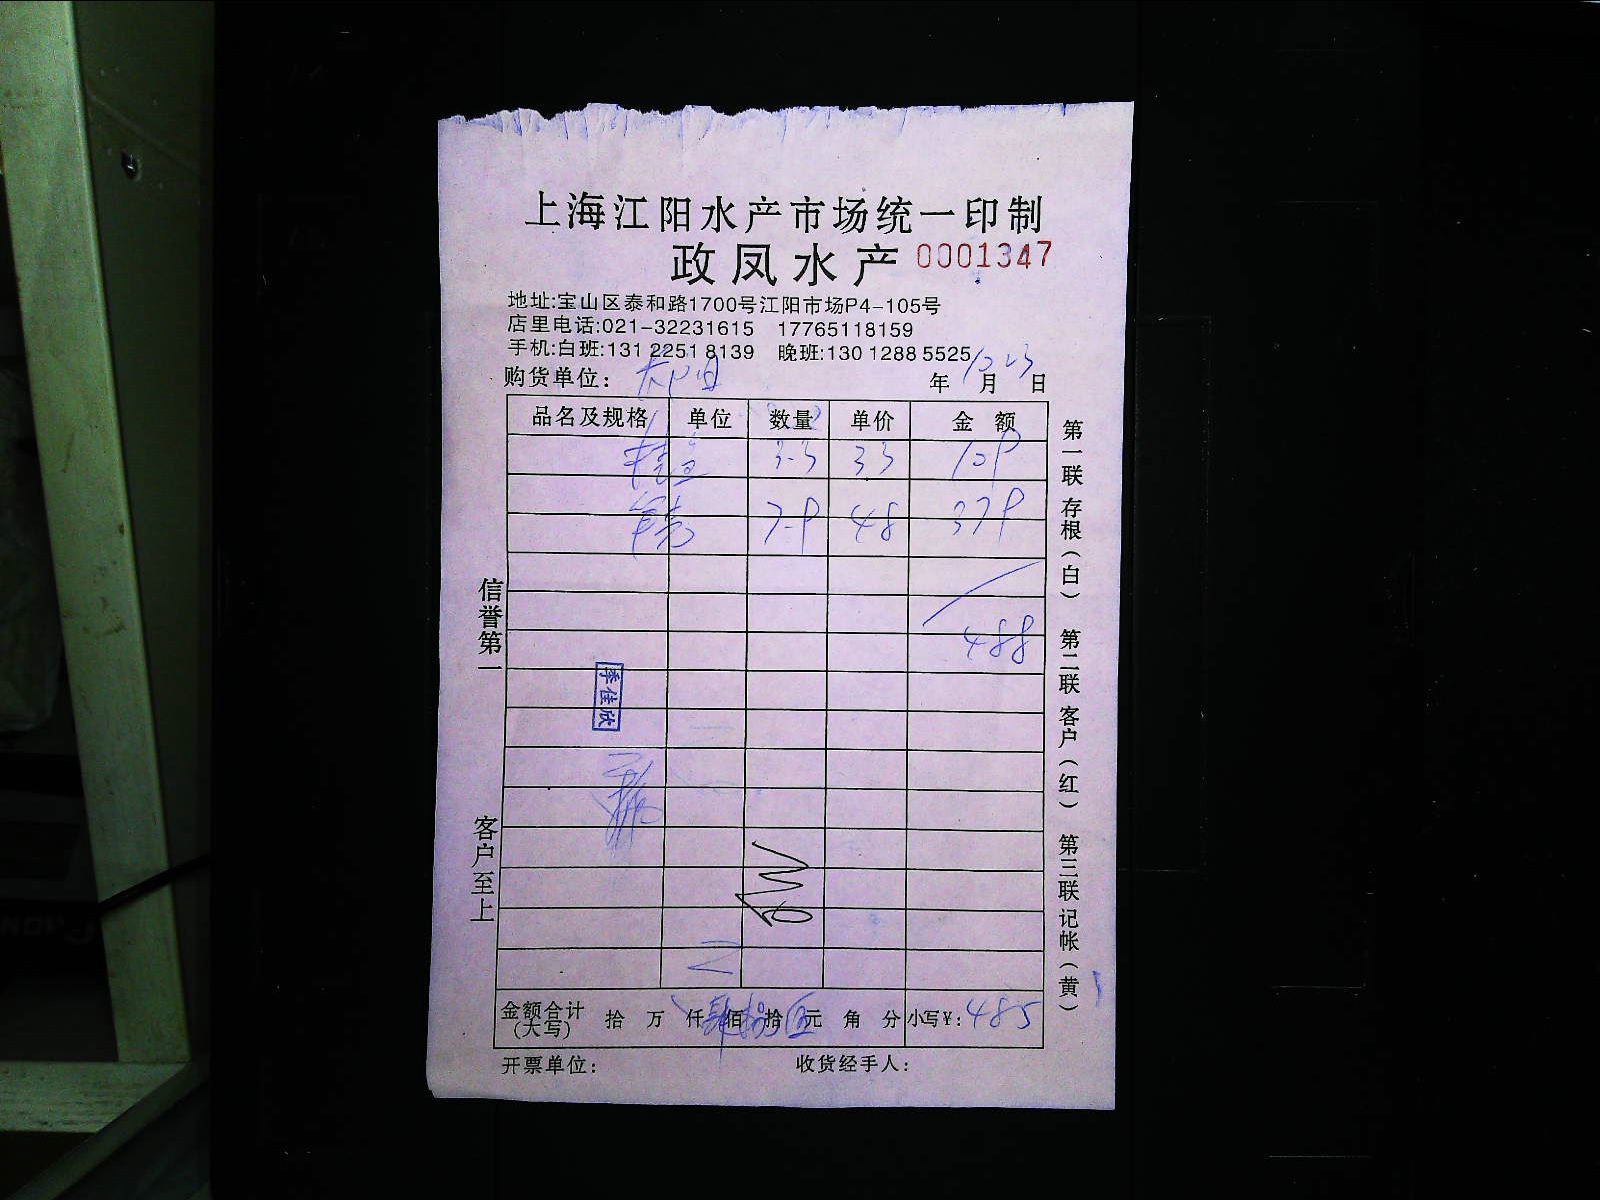 上海江阳水产市场统一印制
政凤水产 0001347
地址:宝山区泰和路1700号江阳市场P4-105号
店里电话:021-32231615 17765118159
手机:白班:131 2251 8139 晚班:130 1288 5525
购货单位: 年 10 月 23 日
品名及规格 单位 数量 单价 金额
3-3 33 109
7-9 48 379
488
季佳欣
金额合计(大写) 拾 万 仟 佰 拾 元 角 分 小写¥: 485
开票单位: 收货经手人:
信誉第一
客户至上
第一联 存根(白) 第二联 客户(红) 第三联 记帐(黄)